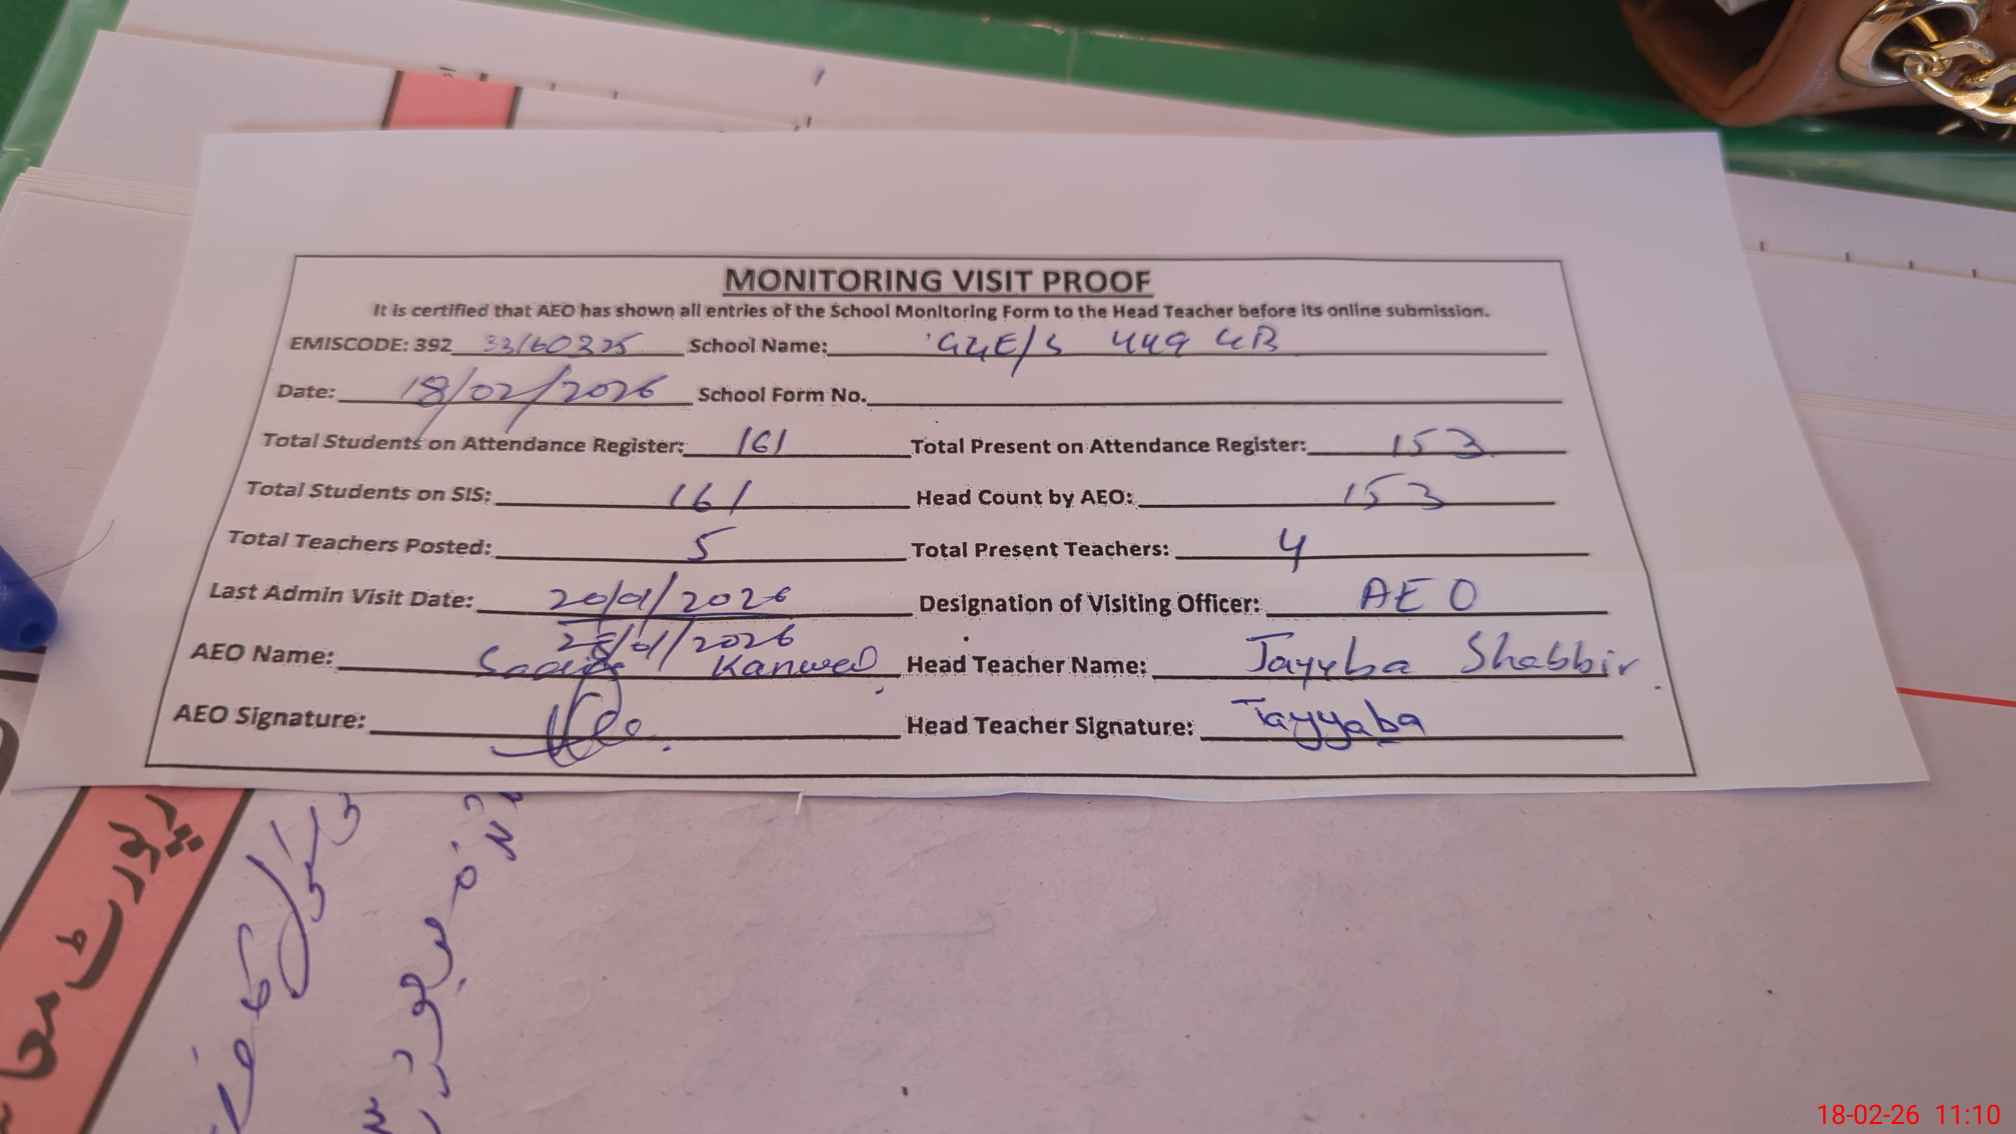 MONITORING VISIT PROOF
It is certified that AEO has shown all entries of the School Monitoring Form to the Head Teacher before its online submission.
EMISCODE: 392 33160325 School Name: 449 GB
Date: 18/02/2026 School Form No.
Total Students on Attendance Register: 161 Total Present on Attendance Register: 153
Total Students on SIS: 161 Head Count by AEO: 153
Total Teachers Posted: 5 Total Present Teachers: 4
Last Admin Visit Date: 20/01/2026 Designation of Visiting Officer: AEO
28/01/2026
AEO Name: Kanwal Head Teacher Name: Tayyba Shabbir
AEO Signature: Head Teacher Signature: Tayyaba
رپورٹ
18-02-26 11:10